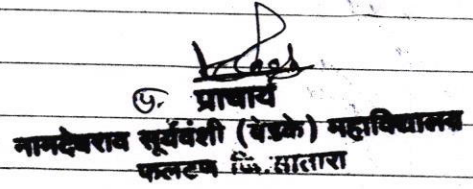 प्राचार्य
नामदेवराव सूर्यवंशी (बेडके) महाविद्यालय
फलटण जि. सातारा